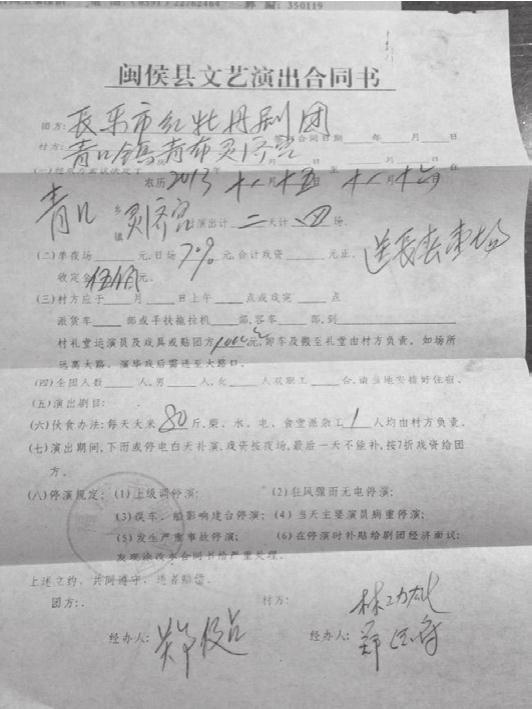 (0591) 22762464 邮编: 350119
闽侯县文艺演出合同书
团方: 长乐市红牡丹剧团
村方: 青口镇青布灵济宫 合同日期 年 月 日
农历 2013年 十八月十五日至十八月十六日
青口 乡镇 灵济宫 演出计 二 天计 四 场。
(二) 单夜场 元, 日场 70% 元, 合计戏资 元正。
收定金 伍佰 元。
(三) 村方应于 月 日上午 点或戏完 点
派货车 部或手扶拖拉机 部, 客车 部, 到
村礼堂运演员及戏具或贴团方 1000元 卸车及搬至礼堂由村方负责。如场所
远离大路, 演毕戏后需送至大路口。
(四) 全团人数 人, 男 人, 女 人双职工 合, 请当地安排好住宿。
(五) 演出剧目:
(六) 伙食办法: 每天大米 80 斤, 柴、水、电、食堂派杂工 1 人均由村方负责。
(七) 演出期间, 下雨或停电白天补演, 戏资按夜场, 最后一天不能补, 按7折戏资给团
方。
(八) 停演规定: (1) 上级调停演; (2) 狂风骤雨无电停演;
(3) 误车、船影响建台停演; (4) 当天主要演员病重停演;
(5) 发生严重事故停演; (6) 在停演时补贴给剧团经济面议;
发现涂改本合同书给严重处理。
上述立约, 共同遵守, 违者赔偿。
团方: 村方:
经办人: 经办人: